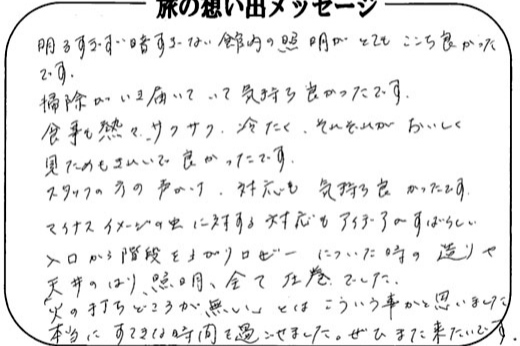 旅の想い出メッセージ
明るすぎず暗すぎない館内の照明がとてもここち良かった
です。
掃除がいき届いていて気持ち良かったです。
食事も熱々、サクサク、冷たく、それぞれがおいしく
見ためもきれいで良かったです。
スタッフの方の声かけ、対応も気持ち良かったです。
マイナスイメージの虫に対する対応もアイデアがすばらしい
入口から階段を上がりロビーについた時の造りや
天井のはり、照明、全て圧巻でした。
「火の打ちどころが無い」とはこういう事かと思いました
本当にすてきな時間を過ごせました。ぜひまた来たいです。